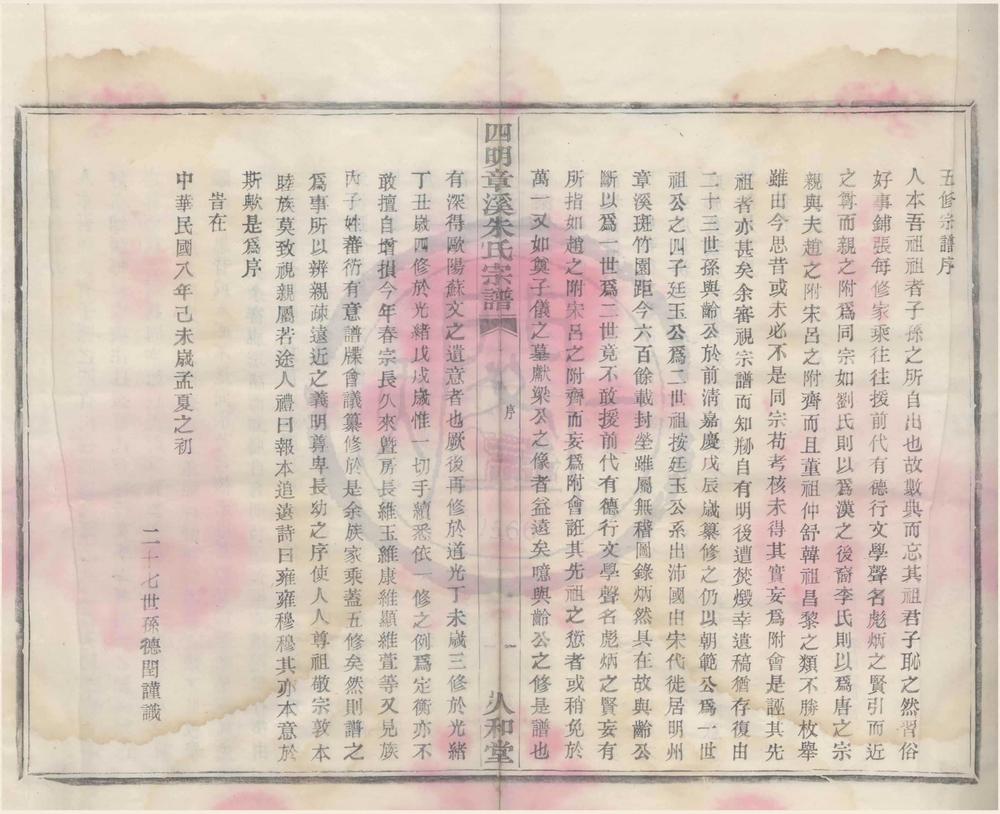 五修宗譜序
人本吾祖祖者子孫之所自出也故數典而忘其祖君子恥之然習俗
好事鋪張每修家乘往往援前代有德行文學聲名彪炳之賢引而近
之尊而親之附爲同宗如劉氏則以爲漢之後裔李氏則以爲唐之宗
親與夫趙之附宋呂之附齊而且董祖仲舒韓祖昌黎之類不勝枚舉
雖由今思昔或未必不是同宗苟考核未得其實妄爲附會是誣其先
祖者亦甚矣余審視宗譜而知剏自有明後遭焚燬幸遺稿猶存復由
二十三世孫與齡公於前淸嘉慶戊辰歲纂修之仍以朝範公爲一世
祖公之四子廷玉公爲二世祖按廷玉公系出沛國由宋代徙居明州
章溪斑竹園距今六百餘載封塋雖屬無稽圖錄炳然具在故與齡公
斷以爲一世爲二世竟不敢援前代有德行文學聲名彪炳之賢妄有
所指如趙之附宋呂之附齊而妄爲附會誑其先祖之愆者或稍免於
萬一又如奠子儀之墓獻梁公之像者益遠矣噫與齡公之修是譜也
四明章溪朱氏宗譜
序
一
人和堂
有深得歐陽蘇文之遺意者也厥後再修於道光丁未歲三修於光緖
丁丑歲四修於光緖戊戌歲惟一切手續悉依一修之例爲定衡亦不
敢擅自增損今年春宗長久來曁房長維玉維康維顯維萱等又見族
內子姓蕃衍有意譜牒會議纂修於是余族家乘蓋五修矣然則譜之
爲事所以辨親疎遠近之義明尊卑長幼之序使人人尊祖敬宗敦本
睦族莫致視親屬若途人禮曰報本追遠詩曰雍雍穆穆其亦本意於
斯歟是爲序
旹在
中華民國八年己未歲孟夏之初
二十七世孫德閏謹識